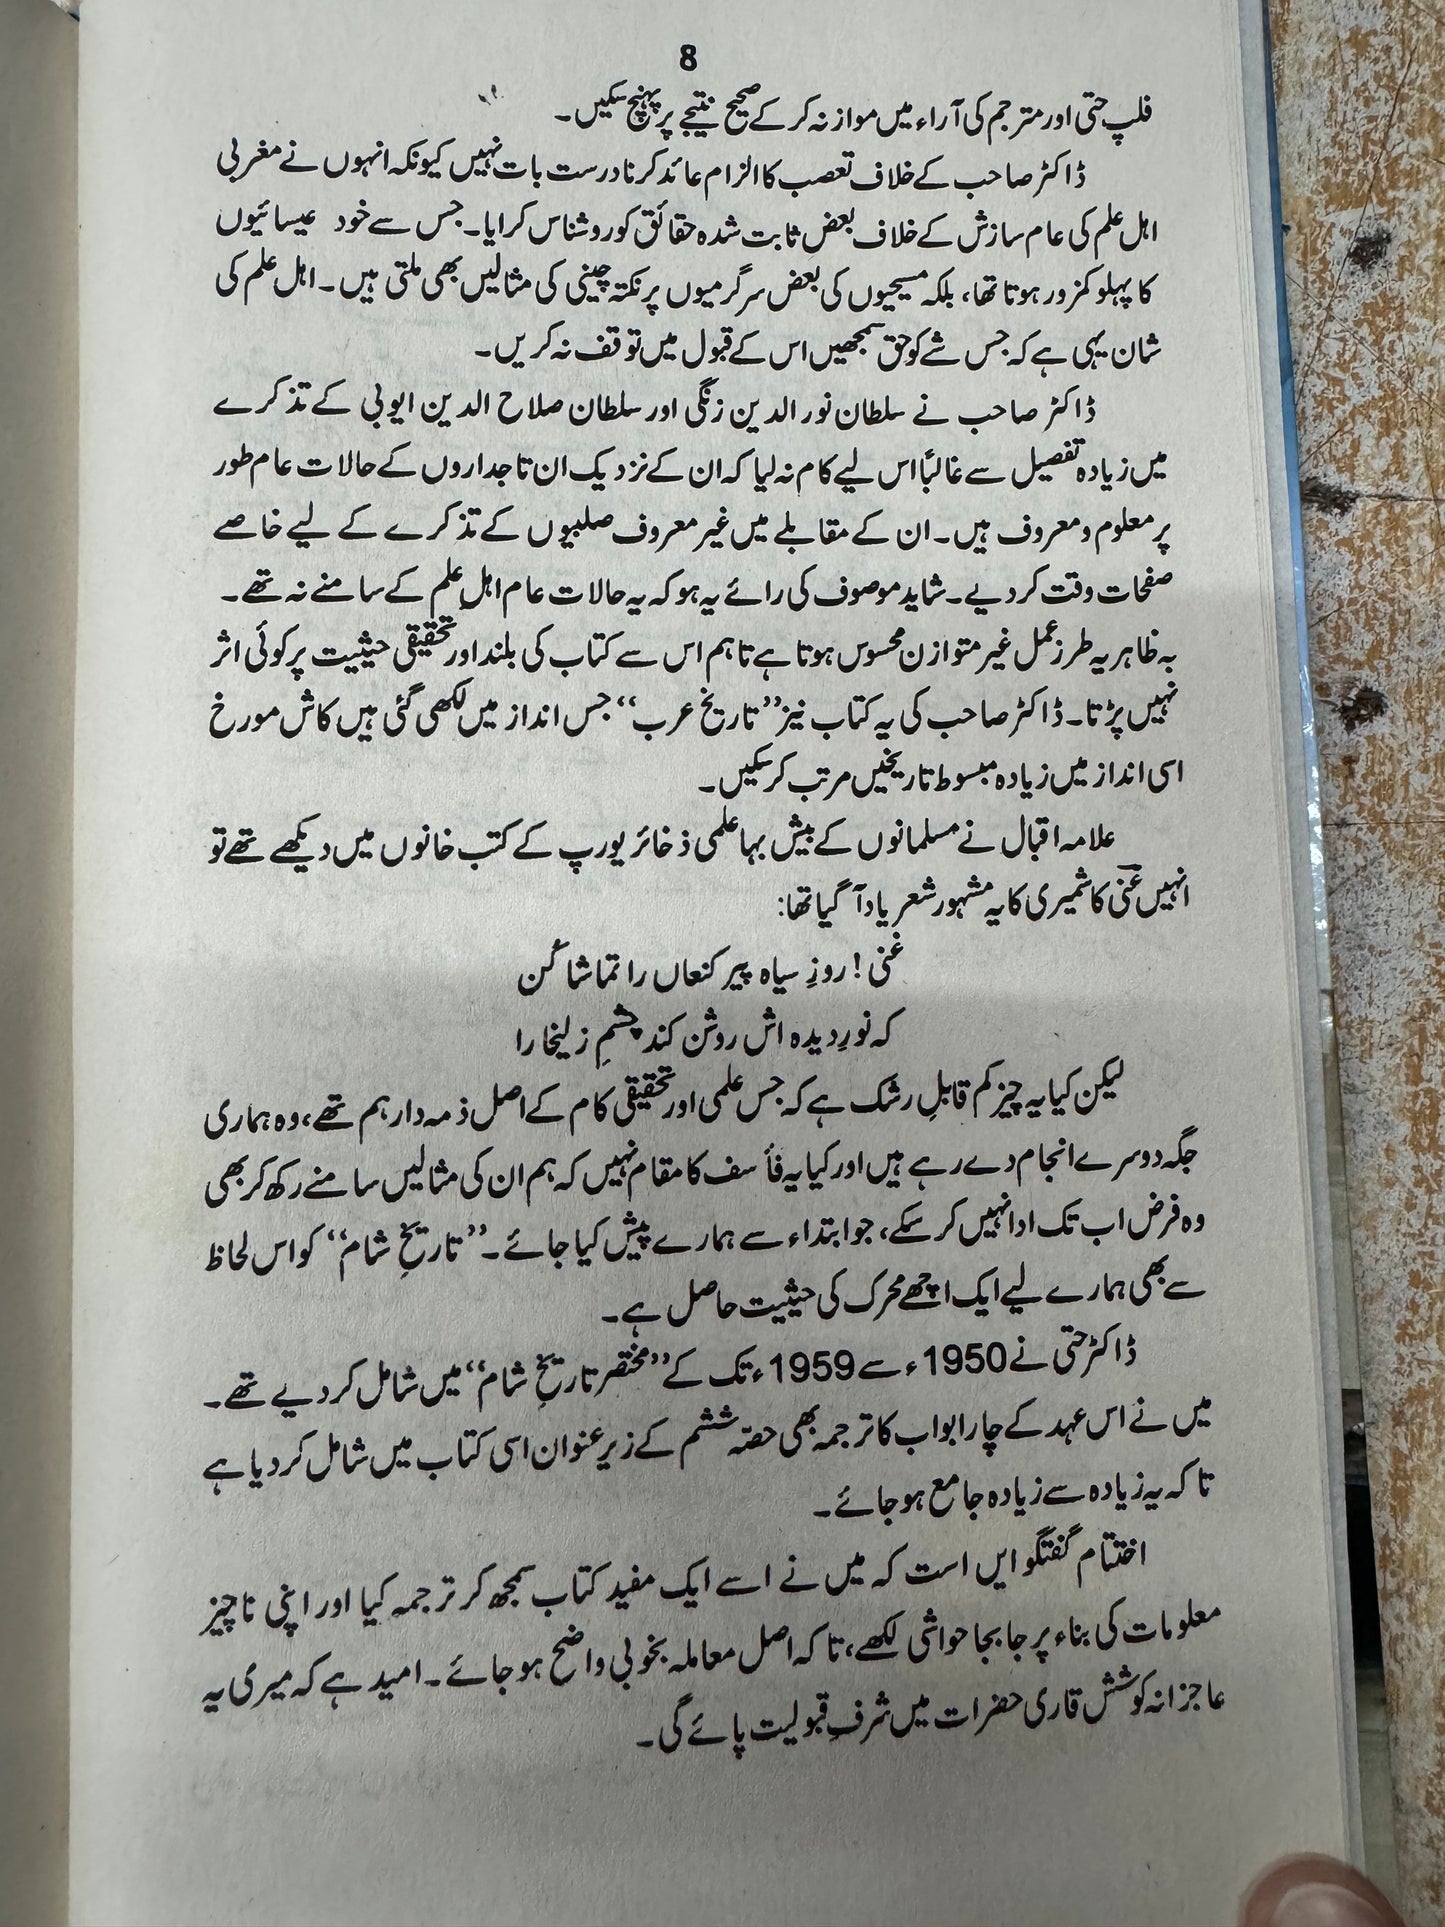 8
فلپ حتی اور مترجم کی آراء میں موازنہ کر کے صحیح نتیجے پر پہنچ سکیں۔
ڈاکٹر صاحب کے خلاف تعصب کا الزام عائد کرنا درست بات نہیں کیونکہ انہوں نے مغربی
اہل علم کی عام سازش کے خلاف بعض ثابت شدہ حقائق کو روشناس کرایا۔ جس سے خود عیسائیوں
کا پہلو کمزور ہوتا تھا، بلکہ مسیحیوں کی بعض سرگرمیوں پر نکتہ چینی کی مثالیں بھی ملتی ہیں۔ اہل علم کی
شان یہی ہے کہ جس شے کو حق سمجھیں اس کے قبول میں توقف نہ کریں۔
ڈاکٹر صاحب نے سلطان نور الدین زنگی اور سلطان صلاح الدین ایوبی کے تذکرے
میں زیادہ تفصیل سے غالباً اس لیے کام نہ لیا کہ ان کے نزدیک ان تاجداروں کے حالات عام طور
پر معلوم و معروف ہیں۔ ان کے مقابلے میں غیر معروف صلیبیوں کے تذکرے کے لیے خاصے
صفحات وقت کر دیے۔ شاید موصوف کی رائے یہ ہو کہ یہ حالات عام اہلِ علم کے سامنے نہ تھے۔
بہ ظاہر یہ طرز عمل غیر متوازن محسوس ہوتا ہے تاہم اس سے کتاب کی بلند اور تحقیقی حیثیت پر کوئی اثر
نہیں پڑتا۔ ڈاکٹر صاحب کی یہ کتاب نیز ’’تاریخ عرب‘‘ جس انداز میں لکھی گئی ہیں کاش مورخ
اسی انداز میں زیادہ مبسوط تاریخیں مرتب کر سکیں۔
علامہ اقبال نے مسلمانوں کے بیش بہا علمی ذخائر یورپ کے کتب خانوں میں دیکھے تھے تو
انہیں غنی کاشمیری کا یہ مشہور شعر یاد آ گیا تھا:
غنی! روزِ سیاہ پیر کنعاں را تماشا کُن
کہ نورِ دیدہ اش روشن کند چشمِ زلیخا را
لیکن کیا یہ چیز کم قابلِ رشک ہے کہ جس علمی اور تحقیقی کام کے اصل ذمہ دار ہم تھے، وہ ہماری
جگہ دوسرے انجام دے رہے ہیں اور کیا یہ فأسف کا مقام نہیں کہ ہم ان کی مثالیں سامنے رکھ کر بھی
وہ فرض اب تک ادا نہیں کر سکے، جو ابتداء سے ہمارے پیش کیا جائے۔ ’’تاریخِ شام‘‘ کو اس لحاظ
سے بھی ہمارے لیے ایک اچھے محرک کی حیثیت حاصل ہے۔
ڈاکٹر حتی نے 1950ء سے 1959ء تک کے ’’مختصر تاریخِ شام‘‘ میں شامل کر دیے تھے۔
میں نے اس عہد کے چار ابواب کا ترجمہ بھی حصّہ ششم کے زیرِ عنوان اسی کتاب میں شامل کر دیا ہے
تا کہ یہ زیادہ سے زیادہ جامع ہو جائے۔
اختتام گفتگو ایں است کہ میں نے اسے ایک مفید کتاب سمجھ کر ترجمہ کیا اور اپنی ناچیز
معلومات کی بناء پر جا بجا حواشی لکھے، تا کہ اصل معاملہ بخوبی واضح ہو جائے۔ امید ہے کہ میری یہ
عاجزانہ کوشش قاری حضرات میں شرفِ قبولیت پائے گی۔